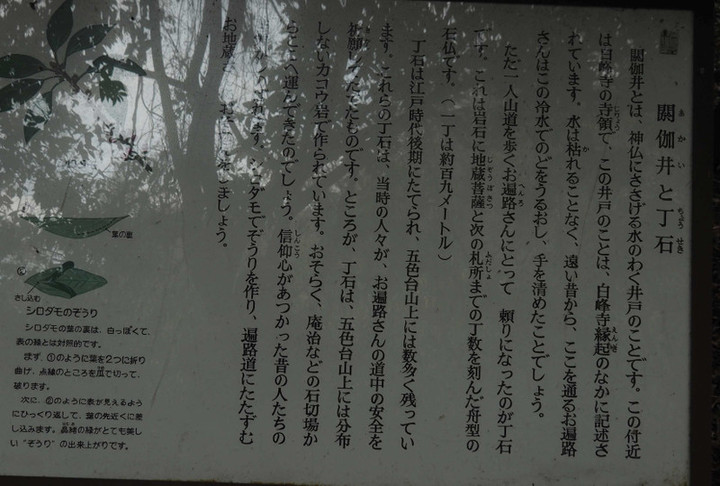 閼伽井と丁石
あかい ちょうせき
閼伽井とは、神仏にささげる水のわく井戸のことです。この付近
は白峰寺の寺領で、この井戸のことは、白峰寺縁起のなかに記述さ
れています。水は枯れることなく、遠い昔から、ここを通るお遍路
さんはこの冷水でのどをうるおし、手を清めたことでしょう。
ただ一人山道を歩くお遍路さんにとって 頼りになったのが丁石
です。これは岩石に地蔵菩薩と次の札所までの丁数を刻んだ舟型の
石仏です。（一丁は約百九メートル）
丁石は江戸時代後期にたてられ、五色台山上には数多く残ってい
ます。これらの丁石は、当時の人々が、お遍路さんの道中の安全を
祈願してたてたものです。ところが、丁石は、五色台山上には分布
しないカコウ岩で作られています。おそらく、庵治などの石切場か
らここへ運んできたのでしょう。信仰心があつかった昔の人たちの
シロダモでぞうりを作り、遍路道にたたずむ
お地蔵 ましょう。
葉の裏
②
さし込む
シロダモのぞうり
シロダモの葉の裏は、白っぽくて、
表の緑とは対照的です。
まず、①のように葉を2つに折り
曲げ、点線のところを爪で切って、
破ります。
次に、②のように表が見えるよう
にひっくり返して、葉の先近くに差
し込みます。鼻緒の緑がとても美し
い“ぞうり”の出来上がりです。